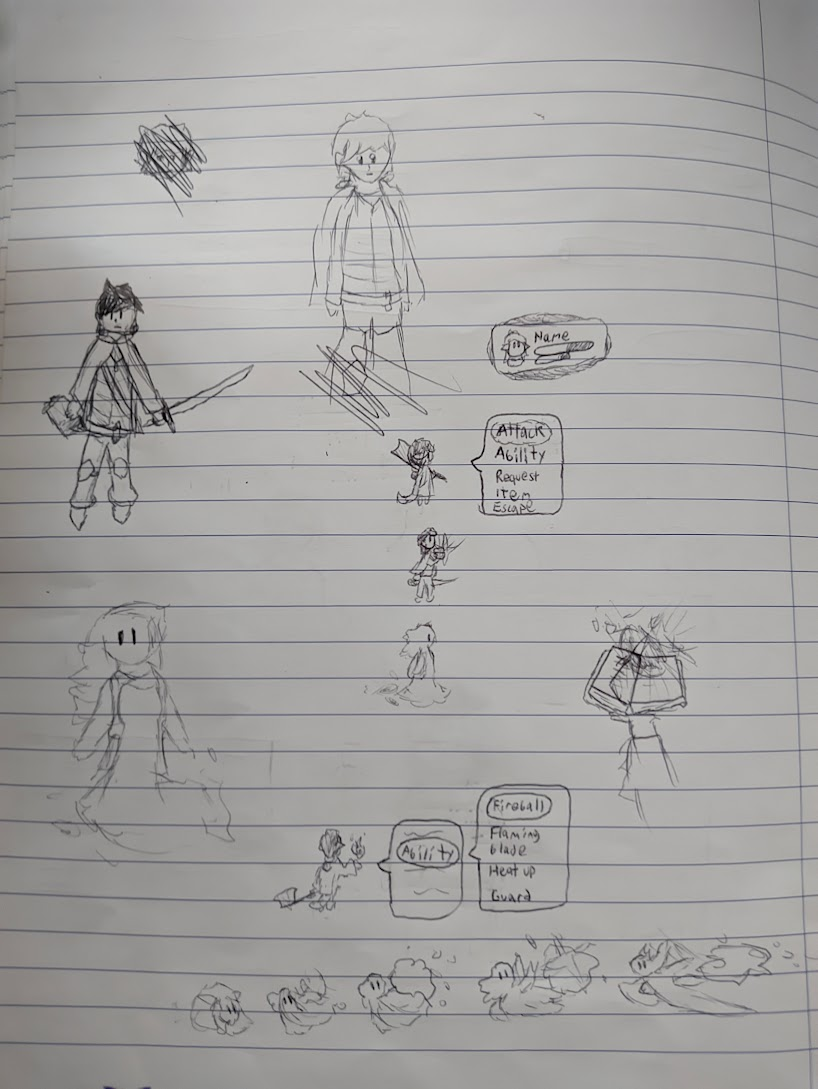 Name
Attack
Ability
Request
item
Escape
Fireball
Flaming
blade
Ability
Heat up
Guard